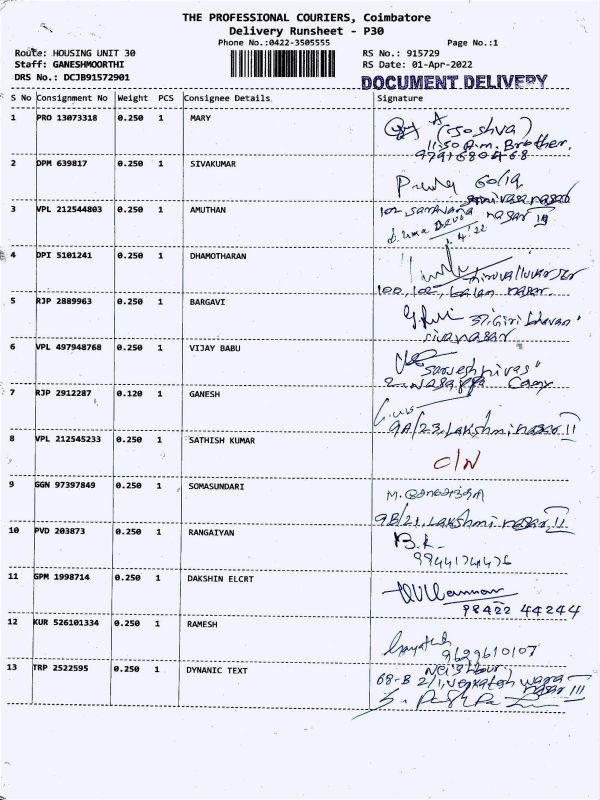 THE PROFESSIONAL COURIERS, Coimbatore
Delivery Runsheet - P30
Phone No.:0422-3505555 Page No.:1
Route: HOUSING UNIT 30 RS No.: 915729
Staff: GANESHMOORTHI RS Date: 01-Apr-2022
DRS No.: DCJB91572901 DOCUMENT DELIVERY
S No Consignment No Weight PCS Consignee Details Signature
1 PRO 13073318 0.250 1 MARY
(Joshva)
11.50 A.m. Brother.
2 DPM 639817 0.250 1 SIVAKUMAR
3 VPL 212544803 0.250 1 AMUTHAN
nagar
4 DPI 5101241 0.250 1 DHAMOTHARAN
100, 102, nagar.
5 RJP 2889963 0.250 1 BARGAVI
sivanagar
6 VPL 497948768 0.250 1 VIJAY BABU
7 RJP 2912287 0.120 1 GANESH
9A/23, Lakshmi nagar II
8 VPL 212545233 0.250 1 SATHISH KUMAR
C/N
9 GGN 97397849 0.250 1 SOMASUNDARI
9B/21, Lakshmi nagar, II
10 PVD 203873 0.250 1 RANGAIYAN
B.K.
11 GPM 1998714 0.250 1 DAKSHIN ELCRT
98422 44244
12 KUR 526101334 0.250 1 RAMESH
9629610107
13 TRP 2522595 0.250 1 DYNANIC TEXT
Neighbour.
68-B 2/1, Venkatesh
nagar III